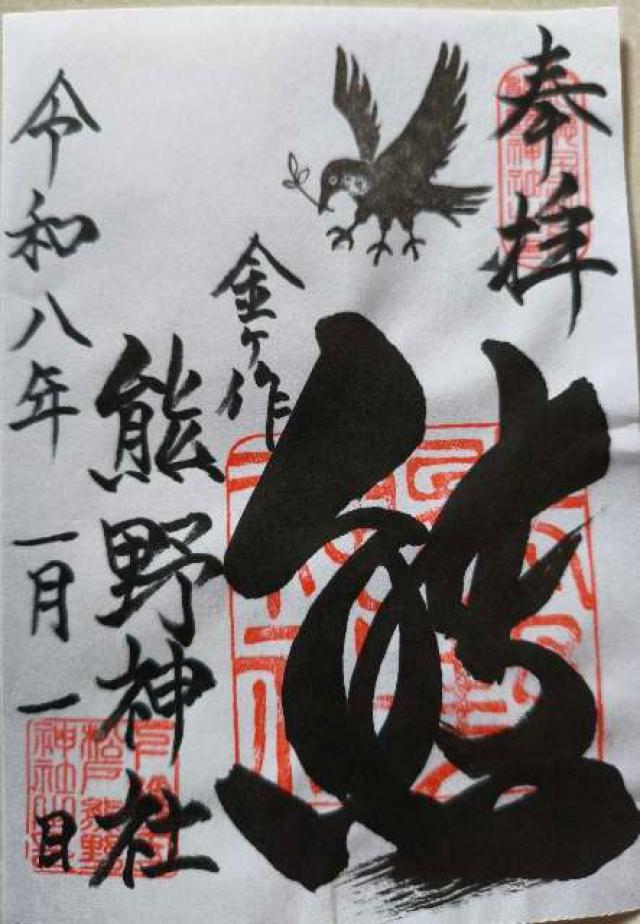 奉拝
熊
金ヶ作
熊野神社
令和八年一月一日